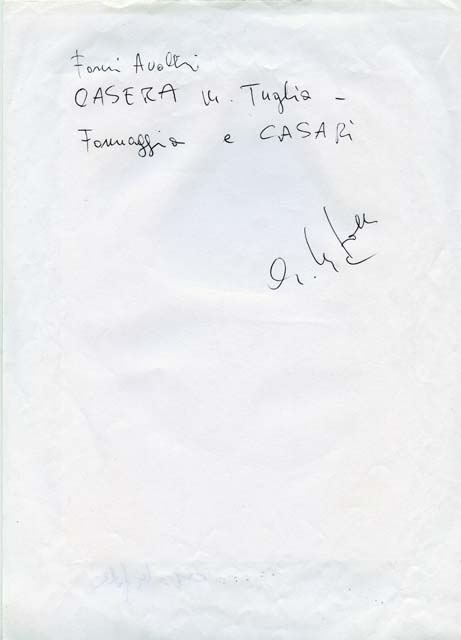 Forni Avoltri
CASERA M. Tuglia -
Formaggia e CASARI